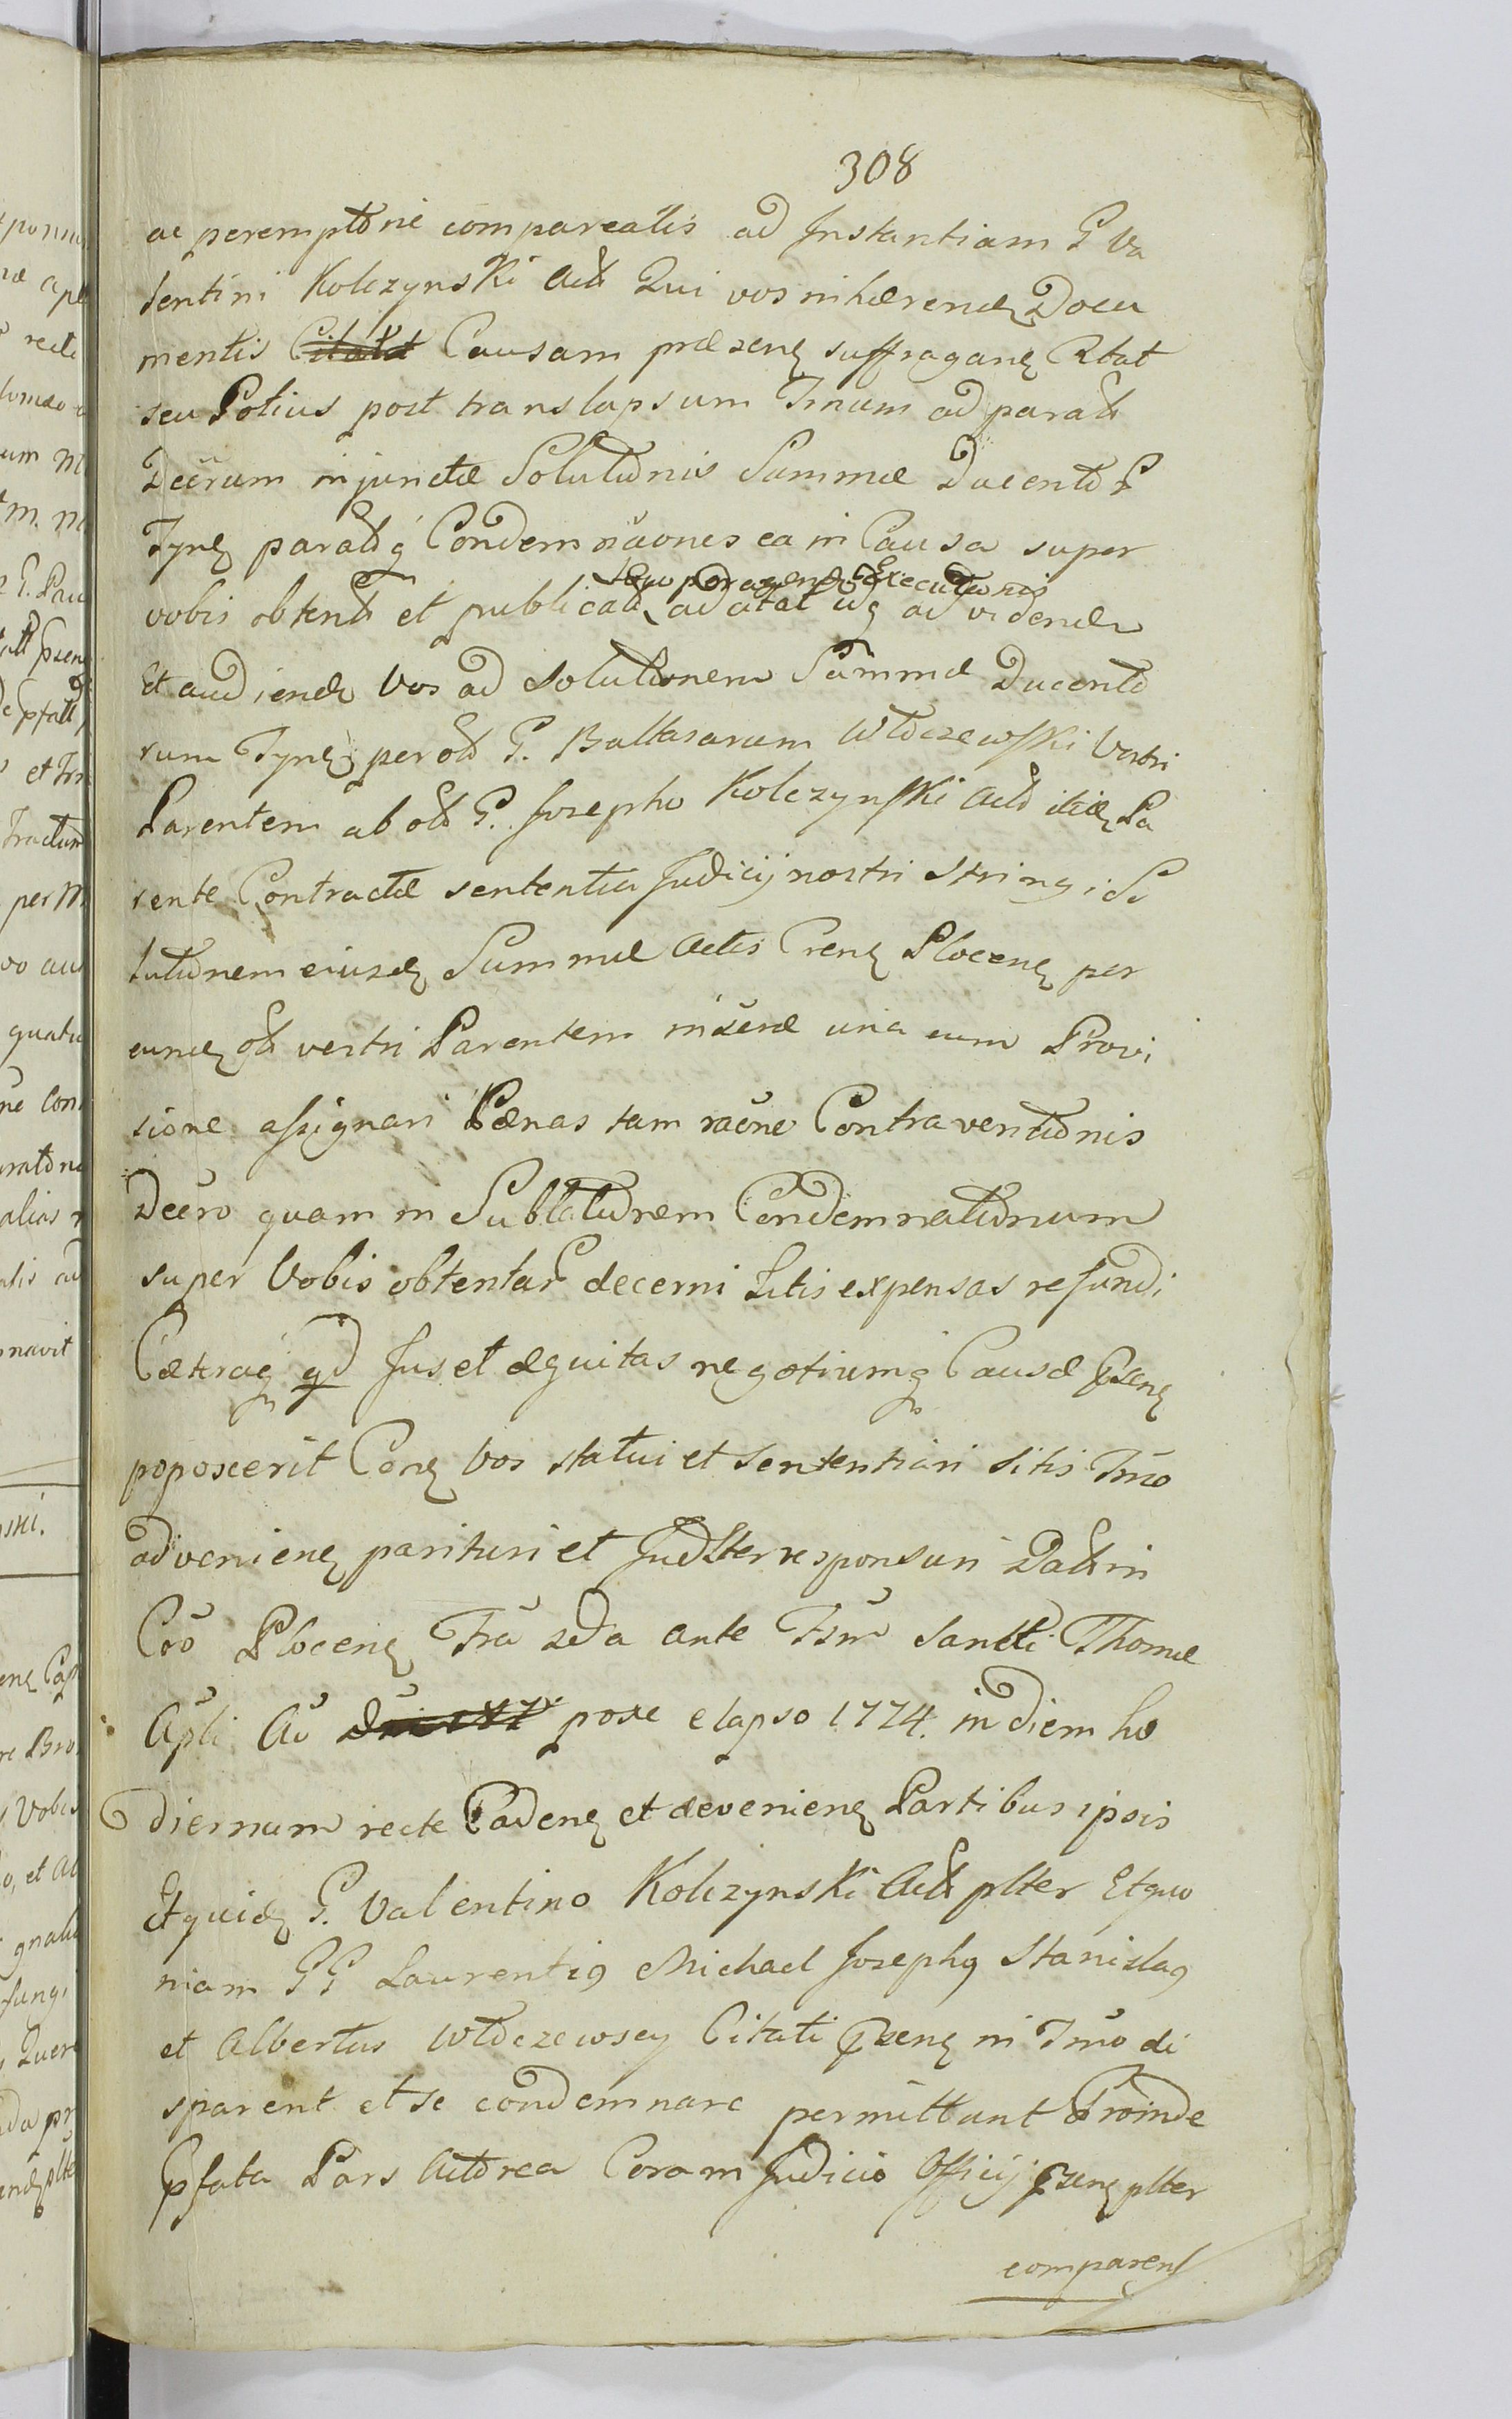 308
ac peremptorie compareatis ad Instantiam G Va
lentini Kolczynski Act Qui vos inhaerendo Docu
mentis Causam praesens suffragans Citat
seu Potius post translapsum Tmum ad paratt
Decrum injunctae Solutionis Summae Ducentor
Tynf paratq Condemnaones ea in Causa super
loco peragendo Executionis
vobis obtent et publicat ad citat idq ad videnda
Et audienda vos ad solutionem Summae Ducento
rum Tynf per olt G. Baltasarum Wloczewski Vestri
Parentem ab olt G. Josepho Kolczynski Act itidem Pa
rente Contractae sententia Judicij nostri stringi So
lutionem eiusd Summae Actis Crens Plocens per
eund olt vestri Parentem inscrae una cum Provi
sione assignari Paenas tam raone Contraventionis
Decro quam in Sublationem Condemnationum
super Vobis obtentar decerni Litis expensas refundi
Caetraq qd Jus et aequitas negotiumq Causae psens
poposcerit Cons vos statui et sententiari sitis Tmo
adveniens parituri et Judlter responsuri Datt in
Cro Plocens Fria 2da ante Fstm Sancti Thomae
Apli Ao poxe elapso 1774. in diem ho
diernum recte Cadens et deveniens Partibus ipsis
Et quidem G. Valentino Kolczynski Act plter Et quo
niam GG Laurentiq Michael Josephq Stanislaq
et Albertus Wloczewscy Citati psens in Tmo di
sparent et se condemnare permittunt Proinde
pfata Pars Actorea Coram Judicio Officij psens plter
comparens